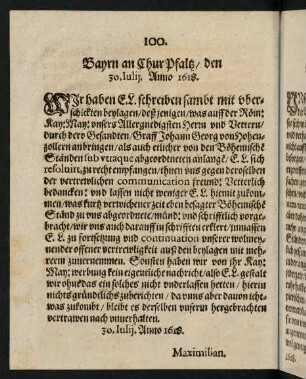 100.
Bayrn an ChurPfaltz/ den
30. Iulij. Anno 1618.
WJr haben E.L. schreiben sambt mit vber-
schickten beylagen/ deßjenigen/ was auff der Röm:
Kay: May: vnsers Allergnedigsten Herrn vnd Vettern/
durch dero Gesandten/ Graff Johann Georg von Hohen-
zollern anbringen/ als auch etlicher von den Böhemische
Ständen sub vtraque abgeordneten anlangt/ E.L. sich
resoluirt, zu recht empfangen/ thuen vns gegen deroselben
der vertrewlichen communication freund: Vetterlich
bedancken: vnd lassen nicht weniger E.L. hiemit zukom-
men/ was kurtz verwichener zeit eben besagter Böhemische
Ständ zu vns abgeordnete/ münd: vnd schrifftlich vorge-
bracht/ wir vns auch darauff in schrifften erklert/ inmassen
E.L. zu fortsetzung vnd continuation vnserer wolmey-
nender offener vertrewligkeit auß den beylagen mit meh-
rerm zuuernemmen. Sonsten haben wir von jhr Kay:
May: werbung kein eigentliche nachricht/ also E.L. gestalt
wir ohne das ein solches nicht vnderlassen hetten/ hierin
nichts gründtlichs zuberichten/ da vnns aber dauon icht-
was zukombt/ bleibt es derselben vnserm hergebrachten
vertrawen nach vnuerhalten.
30. Iulij. Anno 1618.
Maximilian.